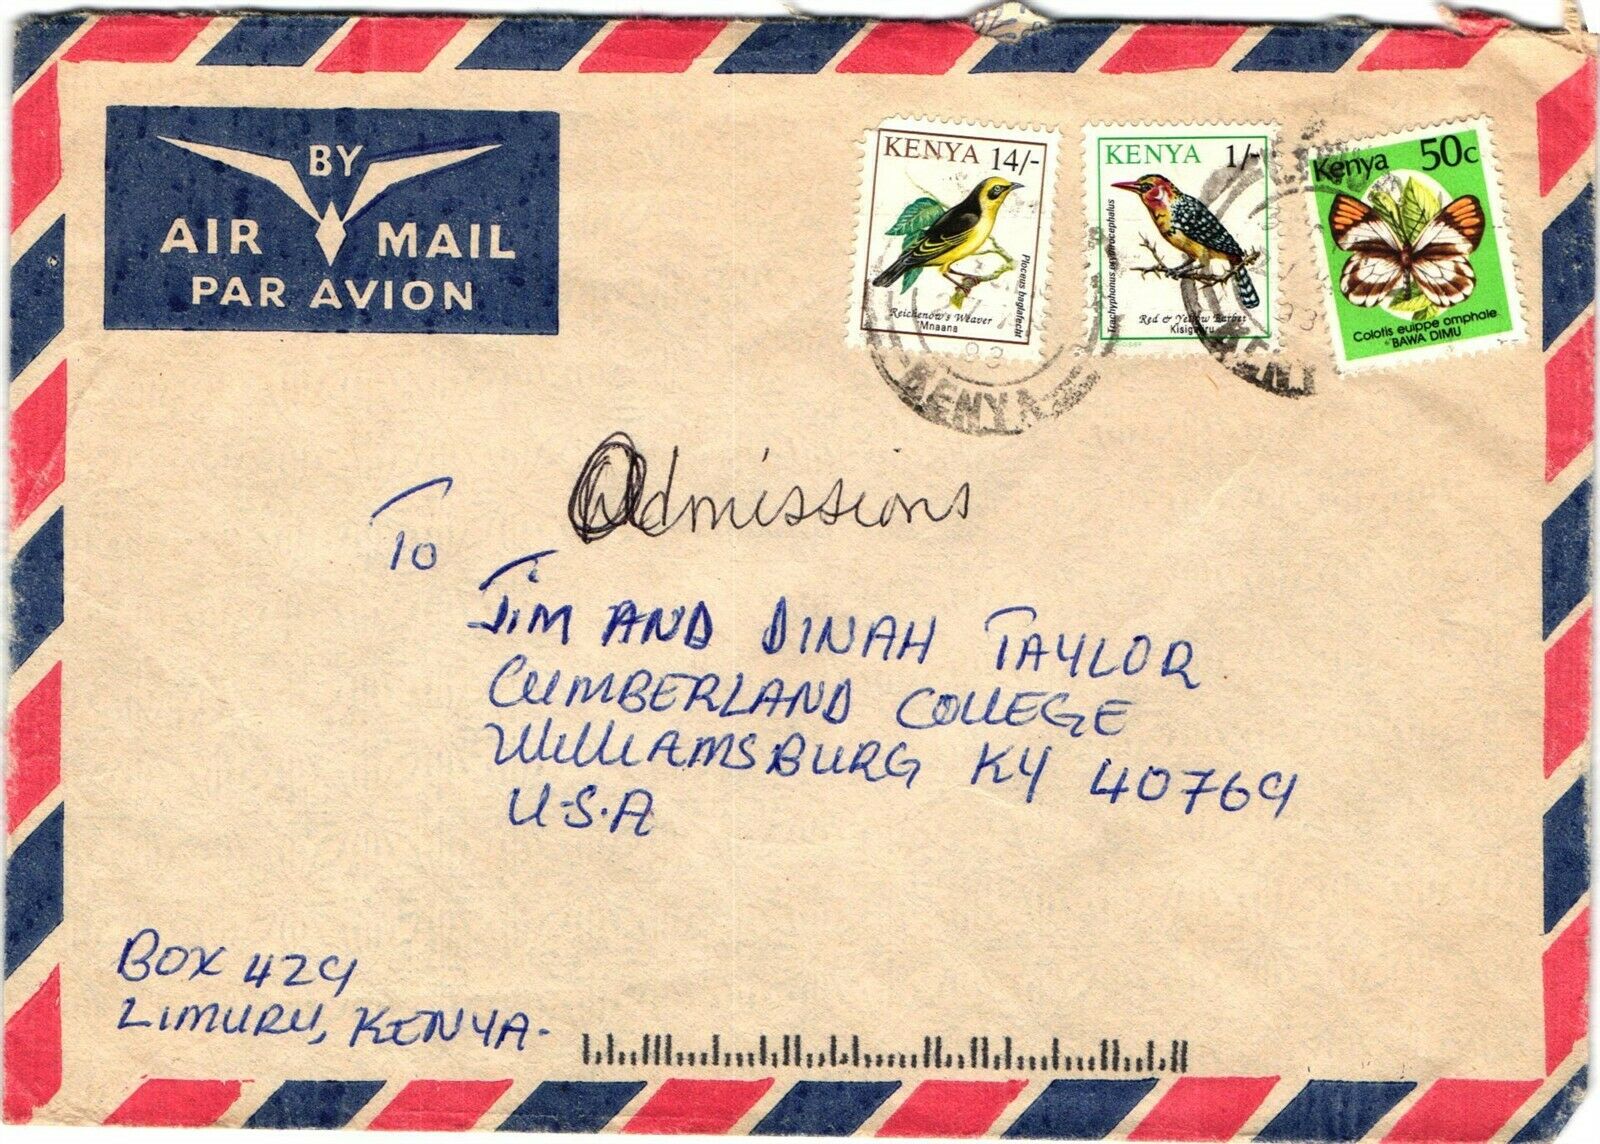 BY
AIR MAIL
PAR AVION
KENYA 14/-
Ploceus baglafecht
Reichenow's Weaver
Mnaana
KENYA 1/-
Trachyphonus erythrocephalus
Red & Yellow Barbet
Kenya 50c
Colotis euippe omphale
BAWA DIMU
93
KENYA
93
Admissions
TO
JIM AND DINAH TAYLOR
CUMBERLAND COLLEGE
WILLIAMSBURG KY 40769
U.S.A
BOX 429
LIMURU, KENYA.